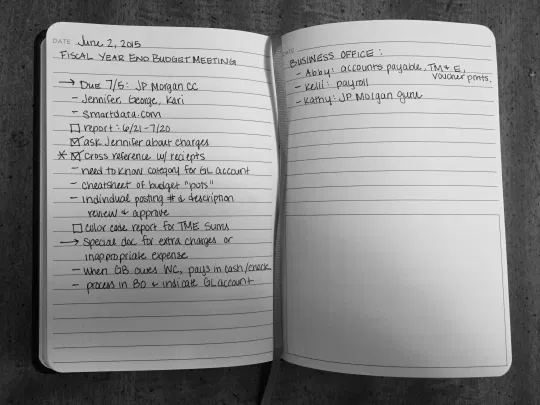 DATE June 2, 2015
FISCAL YEAR END BUDGET MEETING
→ Due 7/5: JP Morgan CC
- Jennifer, George, Kari
- smartdata.com
☐ report: 6/21-7/20
☑ ask Jennifer about charges
* ☑ Cross reference w/ reciepts
- need to know category for GL account
- cheatsheet of budget "pots"
- individual posting # & description
review & approve
☐ color code report for TME sums
→ Special doc for extra charges or
inappropriate expense
- when OB owes WC, pays in cash/check
- process in BO & indicate GL account
DATE
BUSINESS OFFICE:
- Abby: accounts payable, TM&E,
voucher prints.
- Kelli: payroll
- Kathy: JP Morgan guru